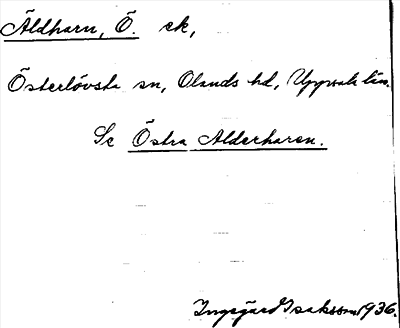 Äldharn, Ö. sk,
Österlövsta sn, Olands hd, Uppsala län.
Se Östra Alderharen.
Ingegärd Isaksson 1936.